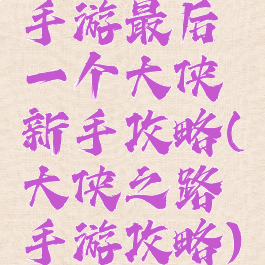 手游最后
一个大侠
新手攻略(
大侠之路
手游攻略)